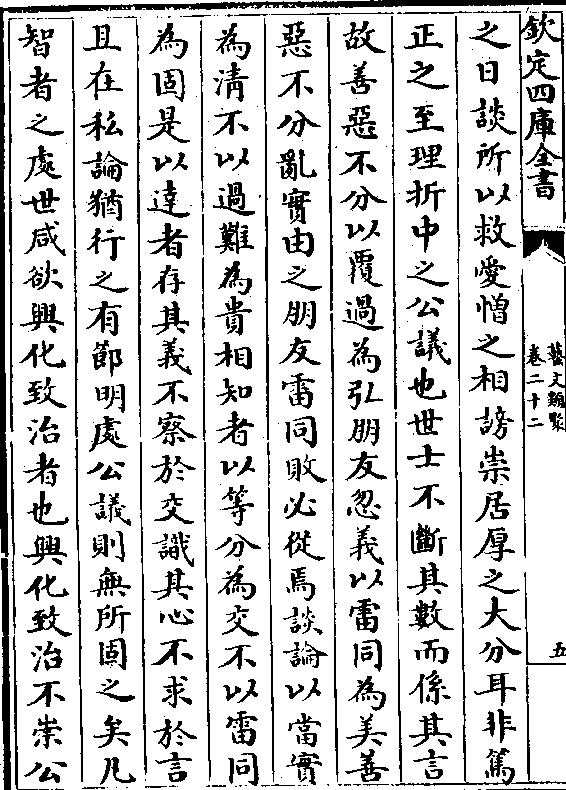 欽定四庫全書
藝文類聚
卷二十二
五
之日談所以救愛憎之相謗崇居厚之大分耳非篤
正之至理折中之公議也世士不斷其數而係其言
故善惡不分以覆過為弘朋友忽義以雷同為美善
惡不分亂實由之朋友雷同敗必從焉談論以當實
為清不以過難為貴相知者以等分為交不以雷同
為固是以達者存其義不察於交識其心不求於言
且在私論猶行之有節明處公議則無所固之矣凡
智者之處世咸欲興化致治者也興化致治不崇公